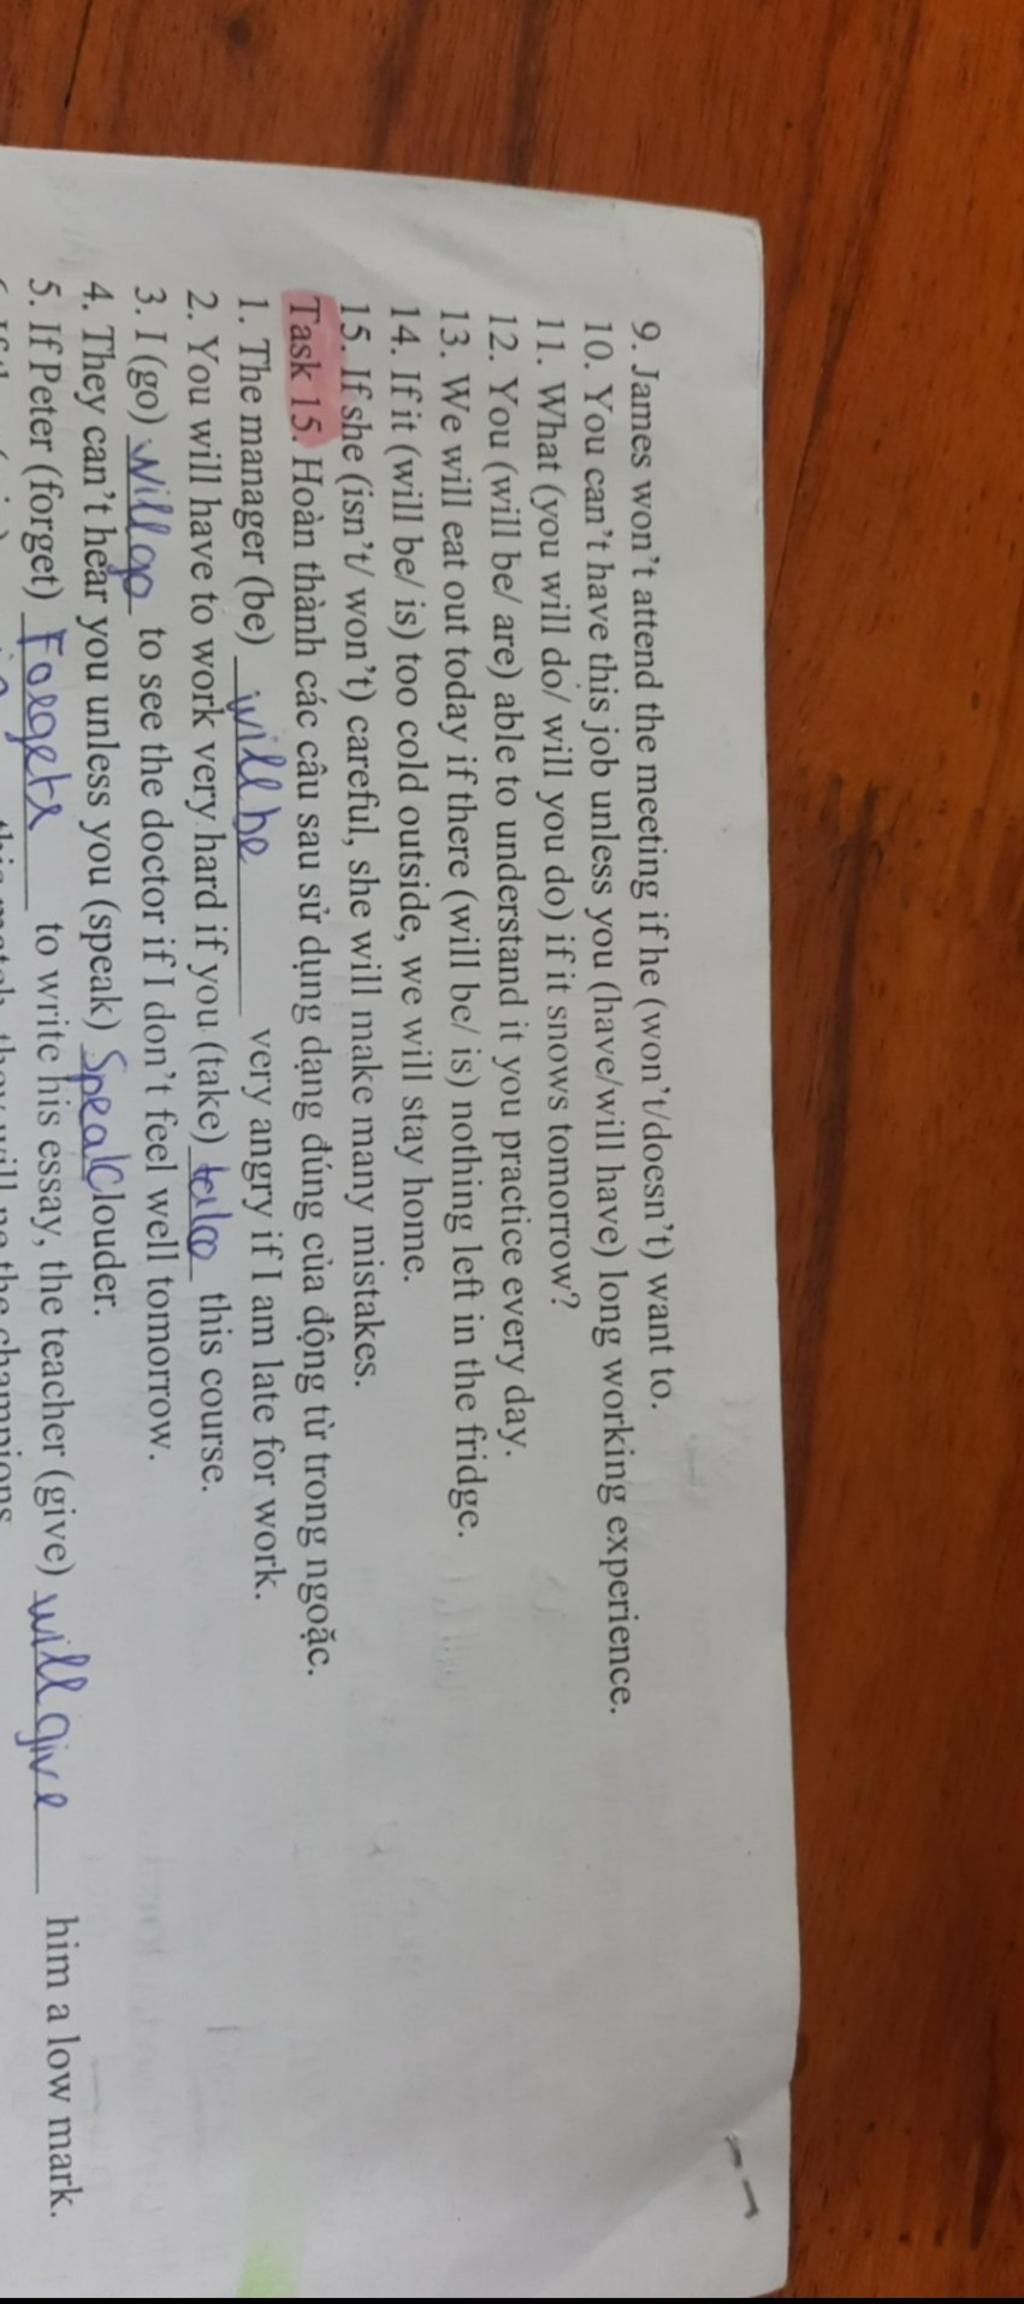 9. James won't attend the meeting if he (won't/doesn't) want to.
10. You can't have this job unless you (have/will have) long working experience.
11. What (you will do/ will you do) if it snows tomorrow?
12. You (will be/ are) able to understand it you practice every day.
13. We will eat out today if there (will be/ is) nothing left in the fridge.
14. If it (will be/ is) too cold outside, we will stay home.
15. If she (isn't/ won't) careful, she will make many mistakes.
Task 15. Hoàn thành các câu sau sử dụng dạng đúng của động từ trong ngoặc.
1. The manager (be) will be very angry if I am late for work.
2. You will have to work very hard if you (take) take this course.
3. I (go) will go to see the doctor if I don't feel well tomorrow.
4. They can't hear you unless you (speak) Speak louder.
5. If Peter (forget) Forgets to write his essay, the teacher (give) will give him a low mark.
this match they will be the champions